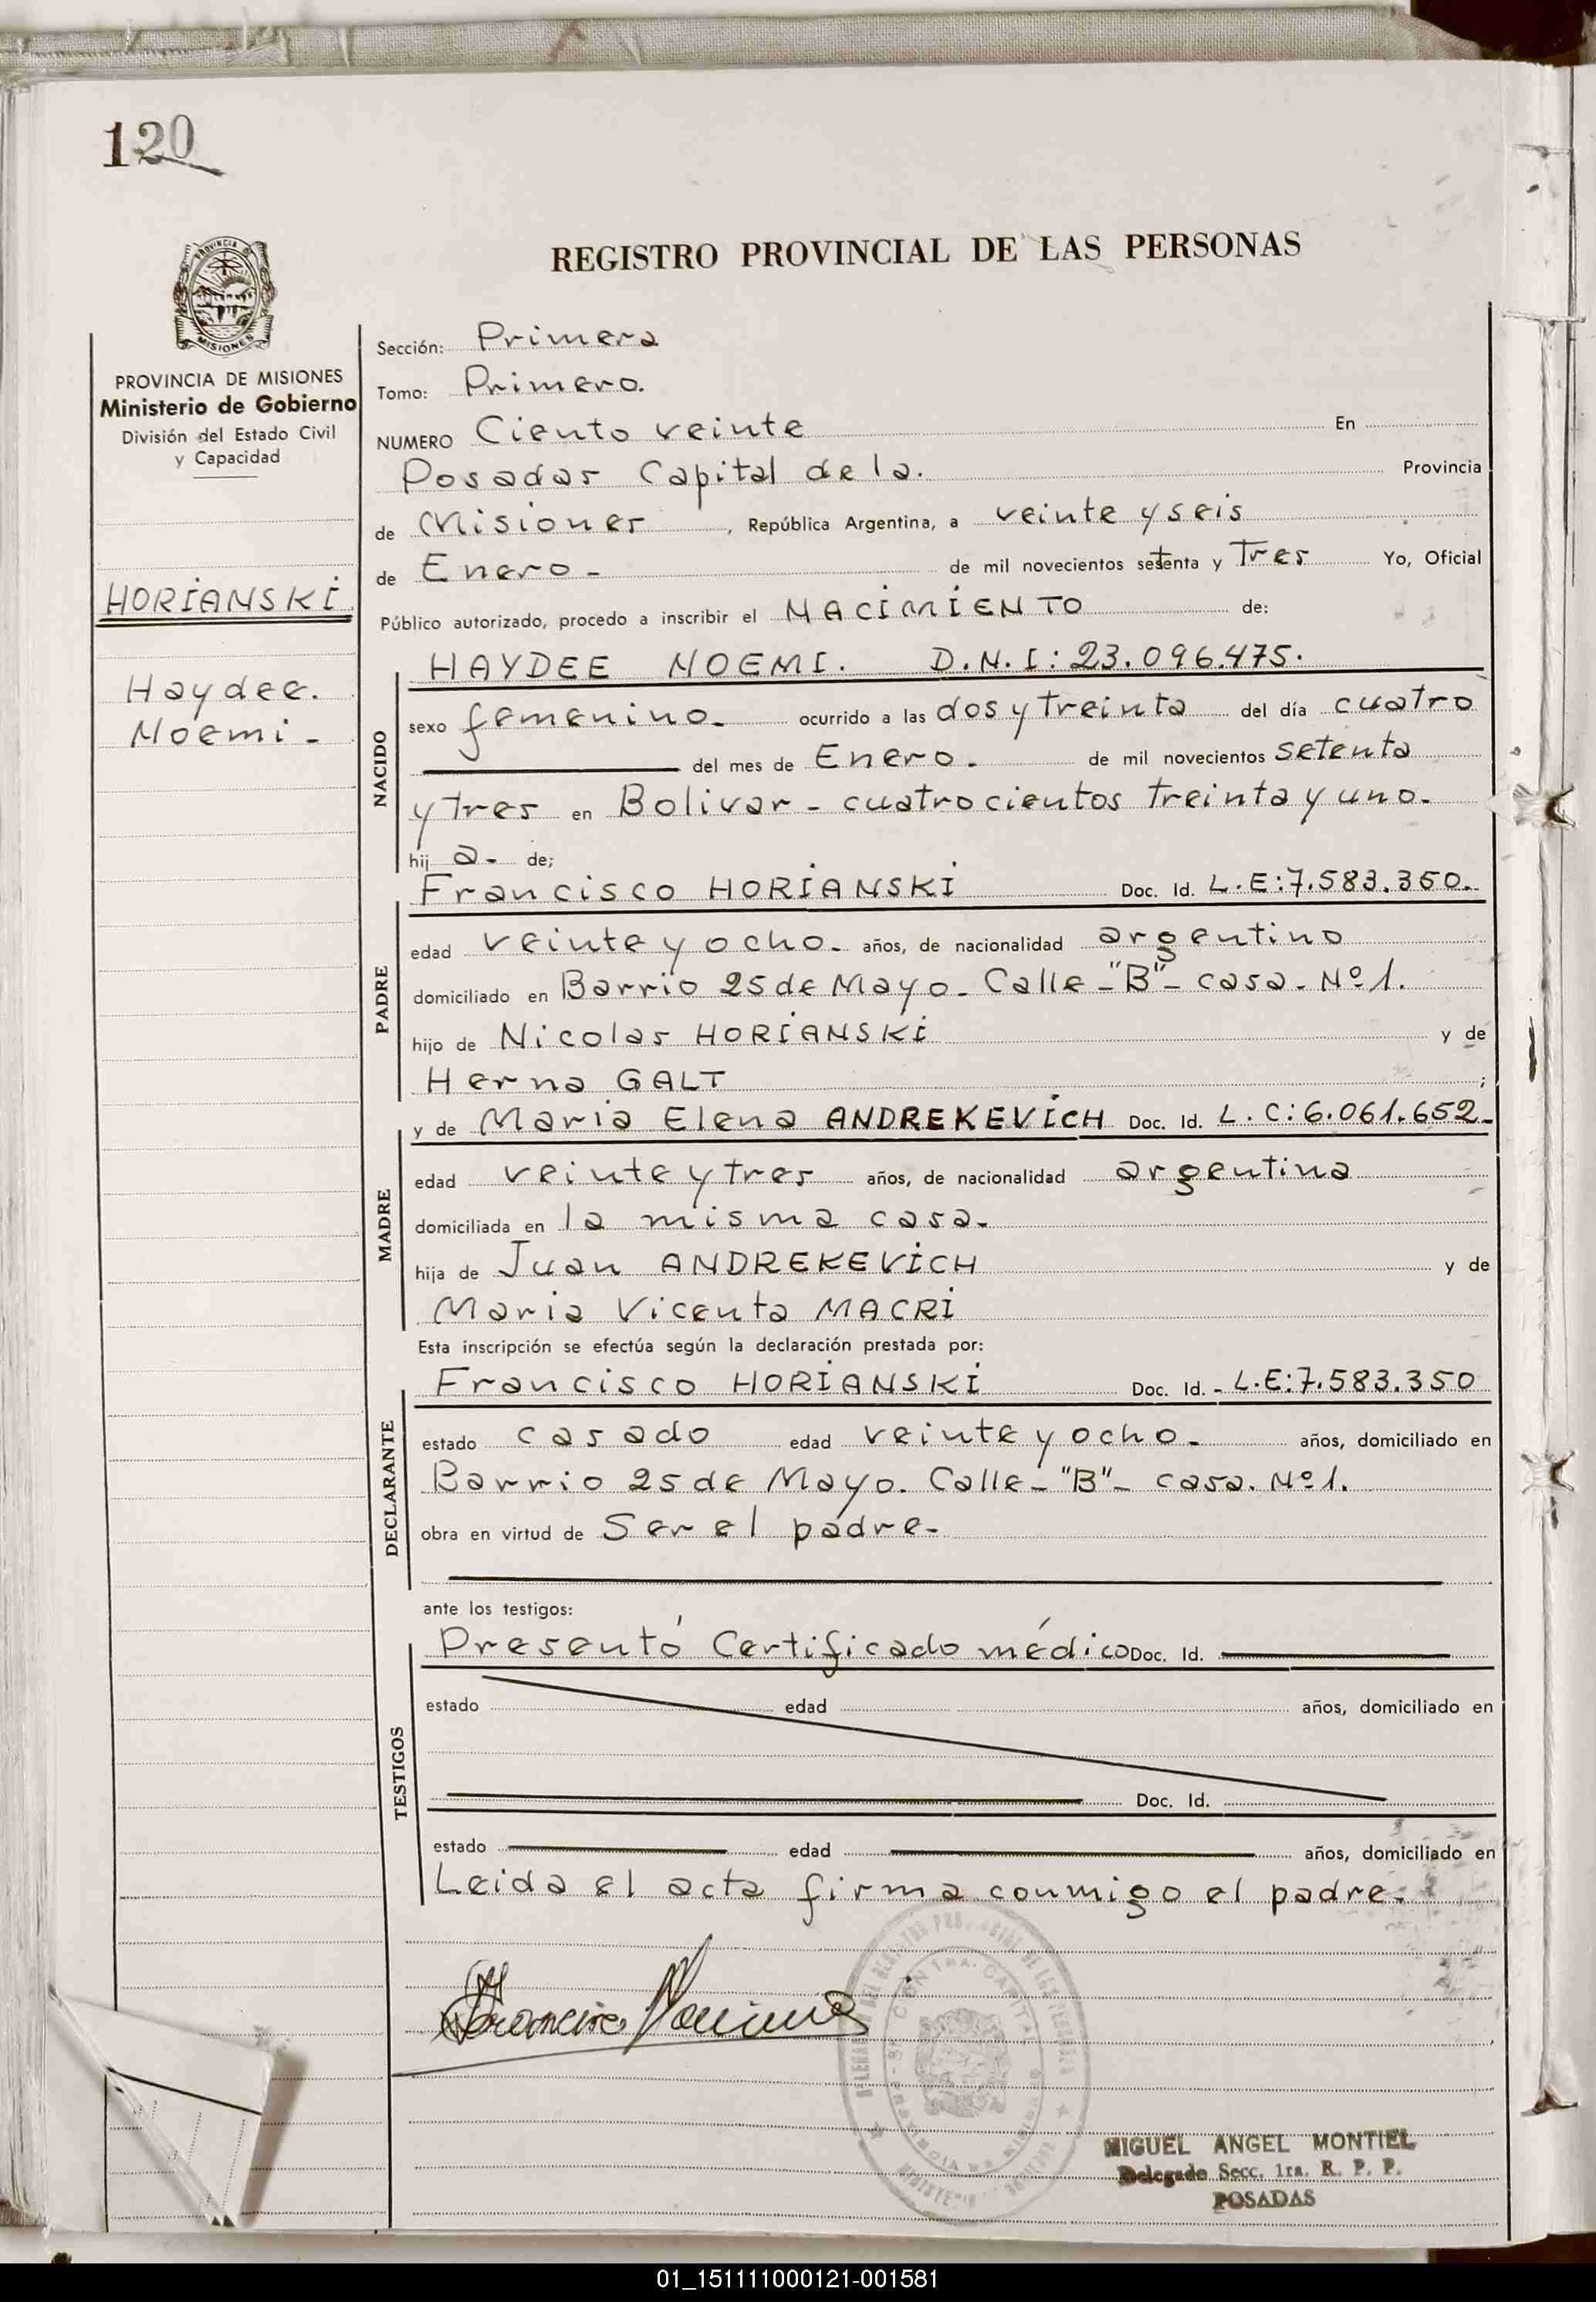 120
REGISTRO PROVINCIAL DE LAS PERSONAS
PROVINCIA
MISIONES
PROVINCIA DE MISIONES
Ministerio de Gobierno
División del Estado Civil
y Capacidad
HORIANSKI
Haydee.
Noemi -
Sección: Primera
Tomo: Primero.
NUMERO Ciento veinte En
Posadas Capital de la. Provincia
de Misiones, República Argentina, a veinte y seis
de Enero - de mil novecientos setenta y Tres Yo, Oficial
Público autorizado, procedo a inscribir el NACIMIENTO de:
NACIDO
HAYDEE NOEMI. D.N.I: 23.096.475.
sexo femenino. ocurrido a las dos y treinta del día cuatro
del mes de Enero. de mil novecientos setenta
y tres en Bolivar - cuatrocientos treinta y uno.
hij a. de;
PADRE
Francisco HORIANSKI Doc. Id. L.E:7.583.350.
edad veinte y ocho. años, de nacionalidad argentino
domiciliado en Barrio 25 de Mayo. Calle - "B" - casa. Nº 1.
hijo de Nicolas HORIANSKI y de
Herna GALT ;
MADRE
y de Maria Elena ANDREKEVICH Doc. Id. L.C:6.061.652-
edad veinte y tres años, de nacionalidad argentina
domiciliada en la misma casa.
hija de Juan ANDREKEVICH y de
Maria Vicenta MACRI
Esta inscripción se efectúa según la declaración prestada por:
DECLARANTE
Francisco HORIANSKI Doc. Id. - L.E:7.583.350
estado casado edad veinte y ocho. años, domiciliado en
Barrio 25 de Mayo. Calle - "B" - casa. Nº 1.
obra en virtud de Ser el padre.
ante los testigos:
TESTIGOS
Presentó Certificado médico Doc. Id.
estado edad años, domiciliado en
Doc. Id.
estado edad años, domiciliado en
Leida el acta firma conmigo el padre.
MIGUEL ANGEL MONTIEL
Delegado Secc. 1ra. R. P. P.
POSADAS
01_151111000121-001581